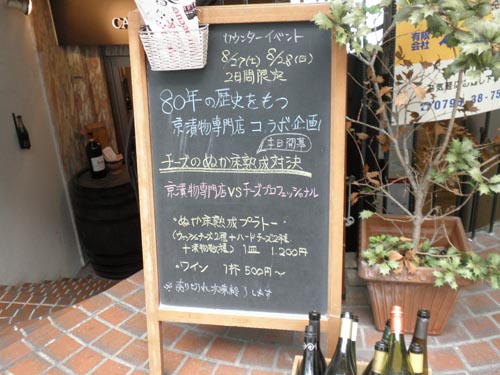 カウンターイベント
8/27(土) 8/28(日)
2日間限定
80年の歴史をもつ
京漬物専門店コラボ企画!
本日開幕
チーズのぬか床熟成対決
京漬物専門店VSチーズプロフェッショナル
・ぬか床熟成プラトー・
(ウォッシュチーズ2種+ハードチーズ2種
+漬物数種) 1皿 1.200円
・ワイン 1杯 500円〜
※売り切れ次第終了します
有限
会社
お気軽に
☎0798-38-75
CA